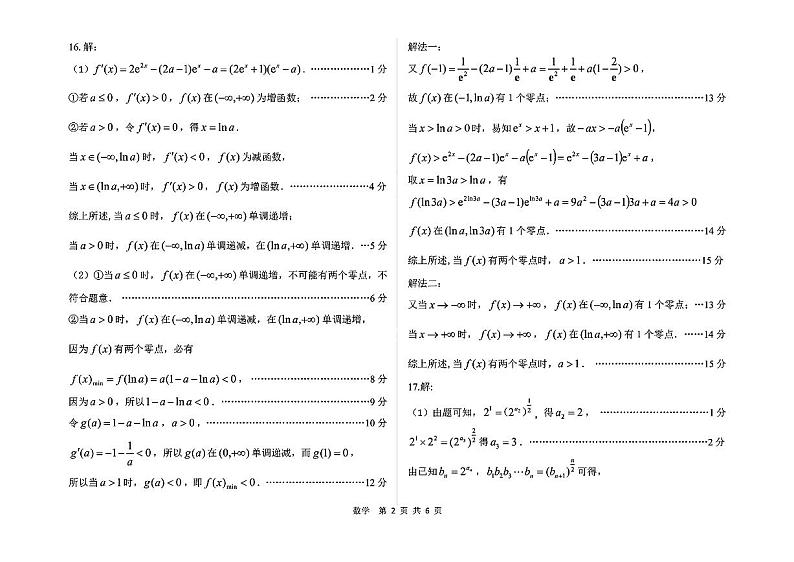 16.解:
（1）f′(x)=2e^{2x}−(2a−1)e^x−a=(2e^x+1)(e^x−a). ………………1 分
①若 a≤0，f′(x)>0，f(x) 在 (−∞,+∞) 为增函数; ………………2 分
②若 a>0，令 f′(x)=0，得 x=ln a.
当 x∈(−∞,ln a) 时，f′(x)<0，f(x) 为减函数，
当 x∈(ln a,+∞) 时，f′(x)>0，f(x) 为增函数. ……………………4 分
综上所述,当 a≤0 时，f(x) 在 (−∞,+∞) 单调递增;
当 a>0 时，f(x) 在 (−∞,ln a) 单调递减，在 (ln a,+∞) 单调递增. …5 分
（2）①当 a≤0 时，f(x) 在 (−∞,+∞) 单调递增，不可能有两个零点，不
符合题意. ……………………………………………………………6 分
②当 a>0 时，f(x) 在 (−∞,ln a) 单调递减，在 (ln a,+∞) 单调递增，
因为 f(x) 有两个零点，必有
f(x)_{min}=f(ln a)=a(1−a−ln a)<0， ………………………………8 分
因为 a>0，所以 1−a−ln a<0. ……………………………………9 分
令 g(a)=1−a−ln a，a>0， ………………………………………10 分
g′(a)=−1−\frac{1}{a}<0，所以 g(a) 在 (0,+∞) 单调递减，而 g(1)=0，
所以当 a>1 时，g(a)<0，即 f(x)_{min}<0. …………………………12 分
解法一:
又 f(−1)=\frac{1}{e^2}−(2a−1)\frac{1}{e}+a=\frac{1}{e^2}+\frac{1}{e}+a(1−\frac{2}{e})>0，
故 f(x) 在 (−1,ln a) 有 1 个零点; ……………………………………13 分
当 x>ln a>0 时，易知 e^x>x+1，故 −ax>−a(e^x−1)，
f(x)>e^{2x}−(2a−1)e^x−a(e^x−1)=e^{2x}−(3a−1)e^x+a，
取 x=ln3a>ln a，有
f(ln3a)>e^{2ln3a}−(3a−1)e^{ln3a}+a=9a^2−(3a−1)3a+a=4a>0
f(x) 在 (ln a,ln3a) 有 1 个零点. ……………………………………14 分
综上所述,当 f(x) 有两个零点时，a>1. …………………………15 分
解法二:
又当 x→−∞ 时，f(x)→+∞，f(x) 在 (−∞,ln a) 有 1 个零点; …13 分
当 x→+∞ 时，f(x)→+∞，f(x) 在 (ln a,+∞) 有 1 个零点. ……14 分
综上所述,当 f(x) 有两个零点时，a>1. …………………………15 分
17.解:
（1）由题可知，2^1=(2^{a_2})^{\frac{1}{2}}，得 a_2=2， …………………………1 分
2^1×2^2=(2^{a_3})^{\frac{2}{2}} 得 a_3=3. …………………………………………2 分
由已知 b_n=2^{a_n}，b_1b_2b_3⋯b_n=(b_{n+1})^{\frac{n}{2}} 可得，
数学 第 2 页 共 6 页